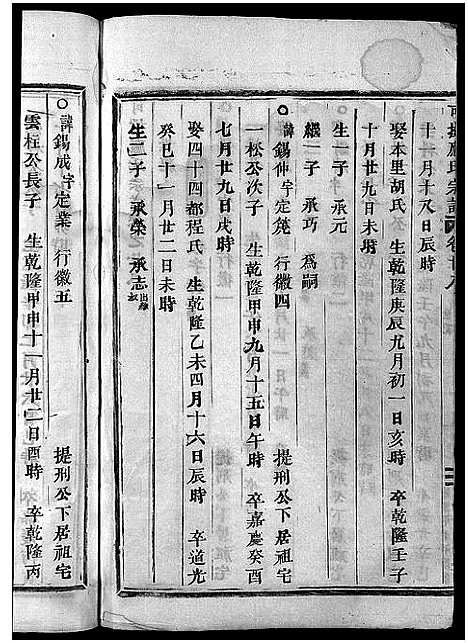 十一月十八日辰時
娶本里胡氏 生乾隆庚辰九月初一日亥時 卒乾隆壬子
十月廿九日未時
生一子 承元
繼一子 承巧 為嗣
諱錫仲字定 行徽四 提刑公下居祖宅
一松公次子 生乾隆甲申九月十五日午時 卒嘉慶癸酉
七月廿九日戌時
娶四十四都程氏 生乾隆乙未四月十六日辰時 卒道光
癸巳十一月廿二日未時
生二子 承榮 承志
諱錫成字定業 行徽五 提刑公下居祖宅
雲柱公長子 生乾隆甲申十一月廿二日酉時 卒乾隆丙